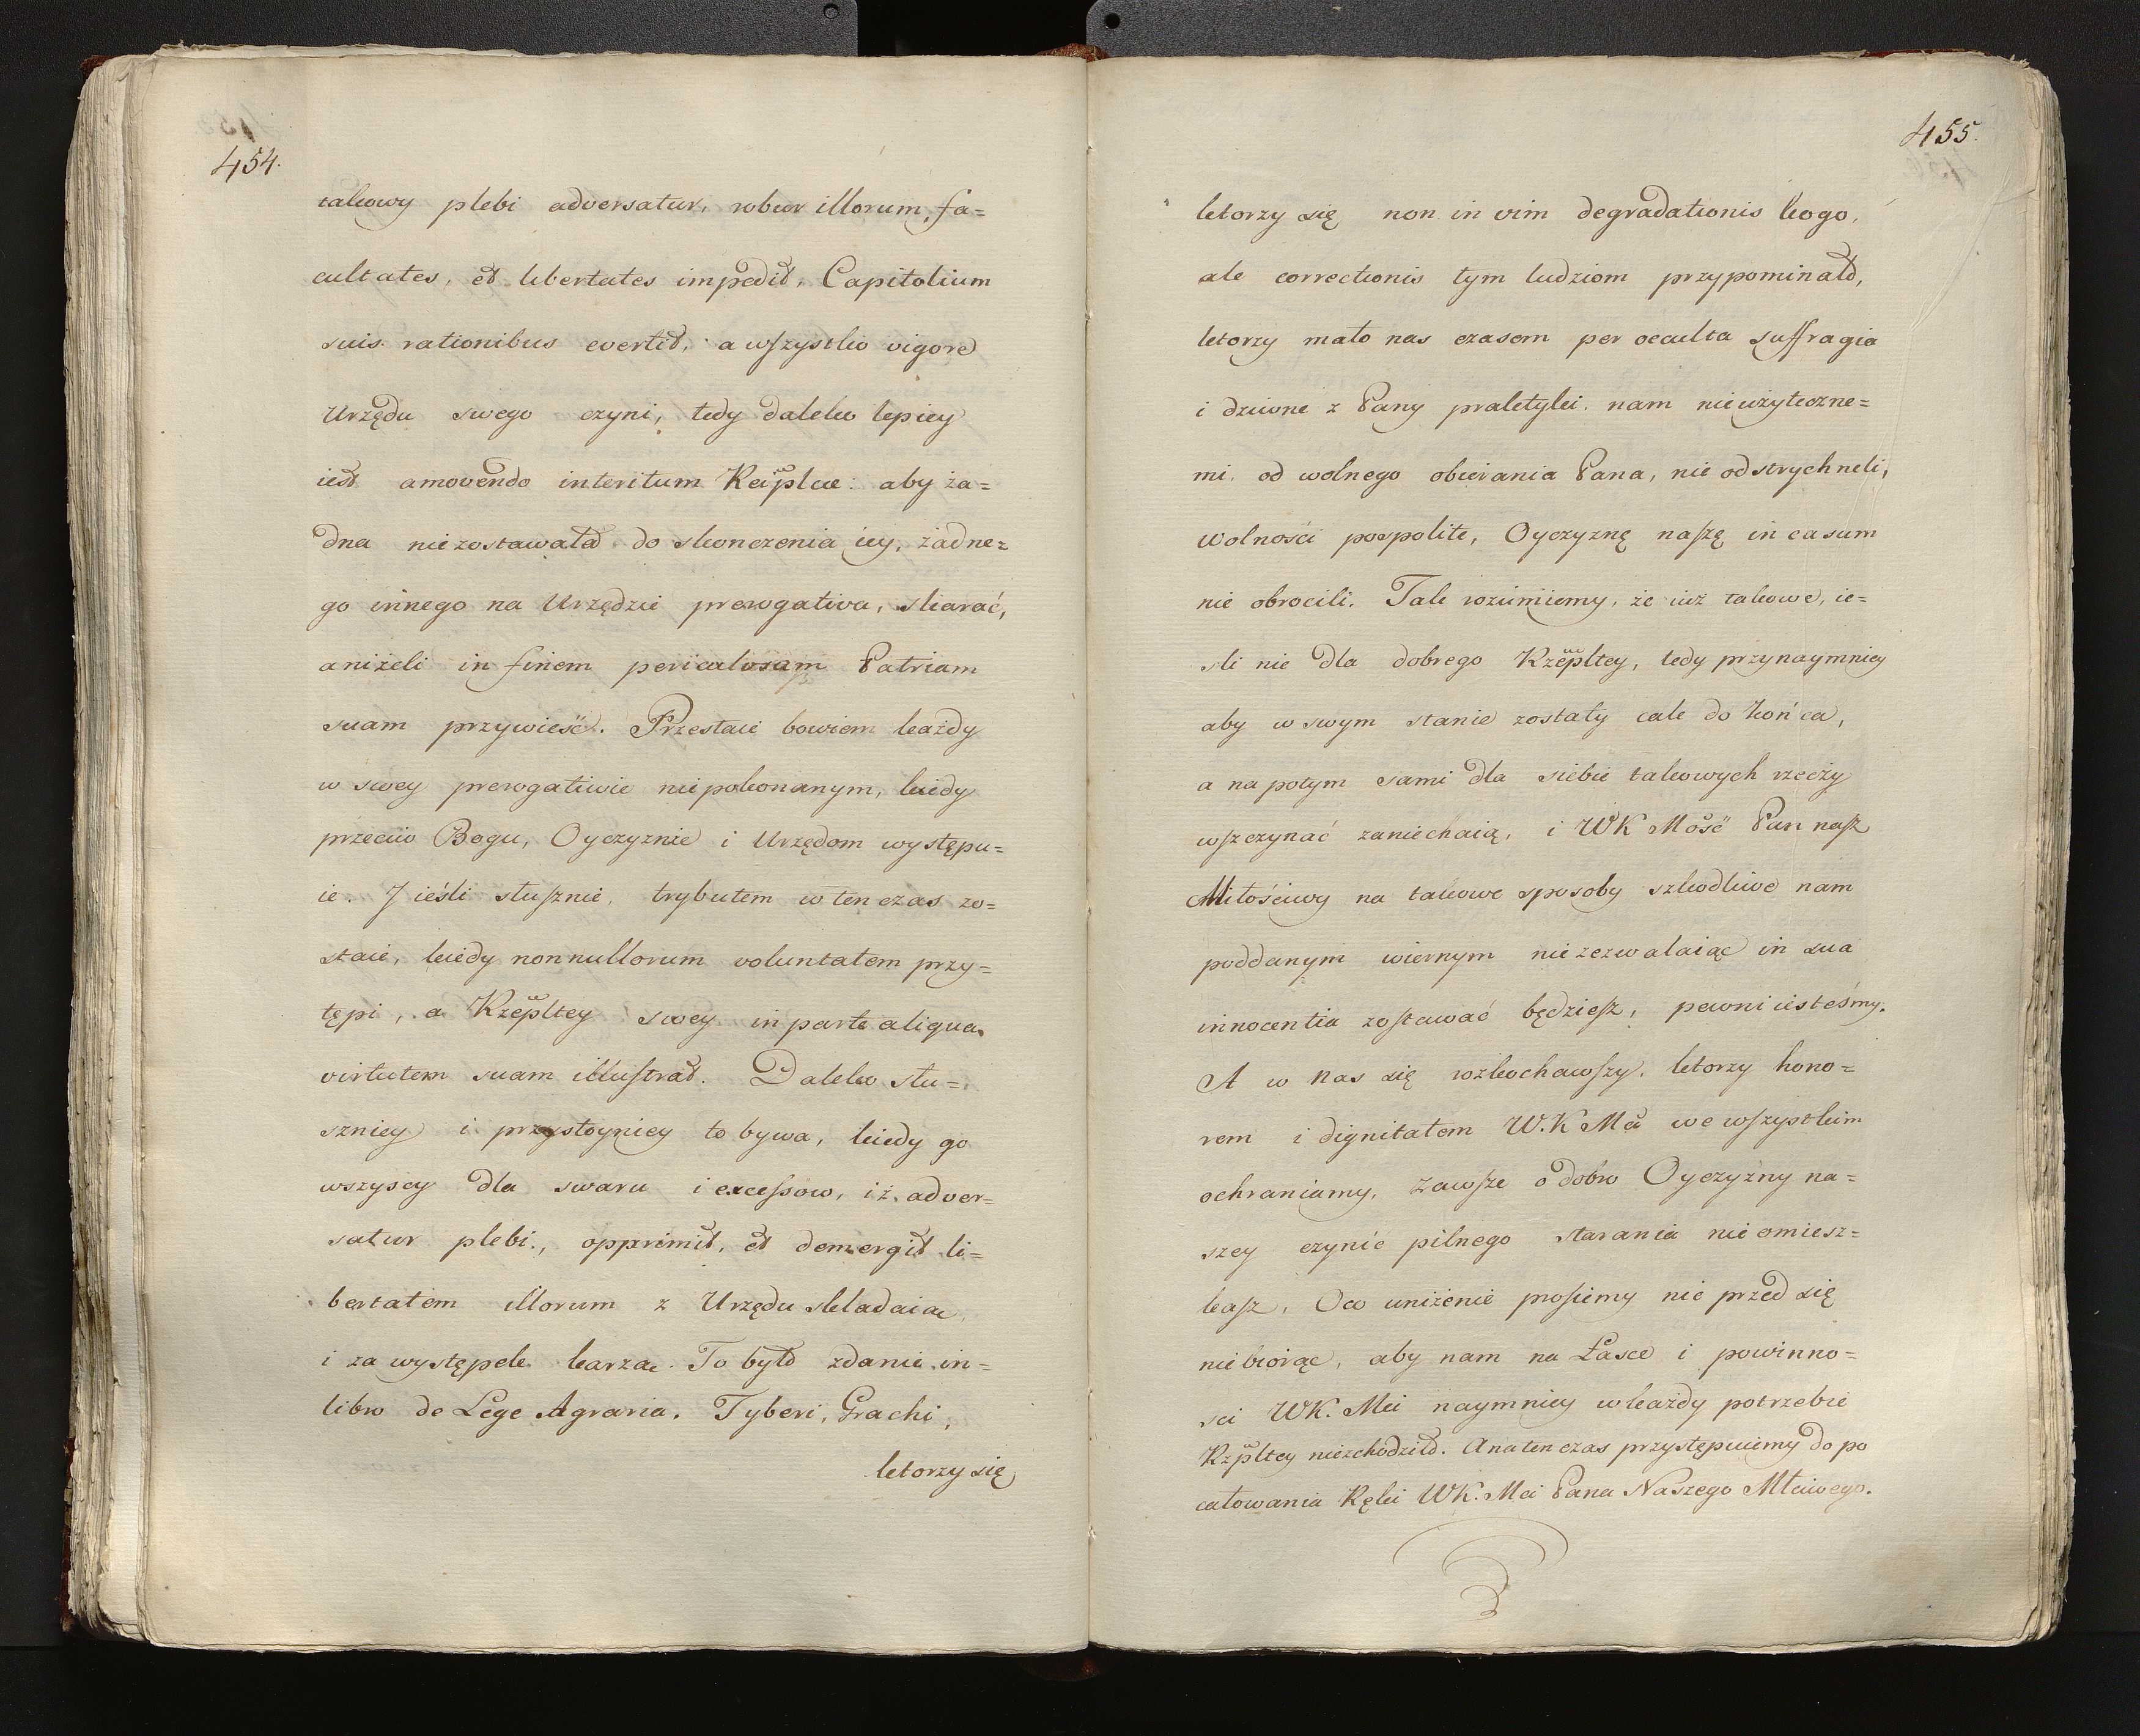 454.
takowy plebi adversatur, robur illorum, fa=
cultates, et libertates impedit, Capitolium
suis rationibus evertit, a wszystko vigore
Urzędu swego czyni, tedy daleko lepiey
iest amovendo interitum Reiplcae: aby ża=
dna nie zostawała do skonczenia iey, żadne=
go innego na Urzędzie prerogativa, skarać,
aniżeli in finem periculosam Patriam
suam przywieść. Przestaie bowiem każdy
w swey prerogatiwie niepokonanym, kiedy
przeciw Bogu, Oyczyznie i Urzędom występu=
ie. J ieśli słusznie, trybutem w ten czas zo=
staie, kiedy nonnullorum voluntatem przy=
tępi, a Rzepltey swey in parte aliqua
virtutem suam illustrat. Daleko słu=
szniey i przystoyniey to bywa, kiedy go
wszyscy dla swaru i excessow, iż adver=
satur plebi, opprimit, et demergit li=
bertatem illorum z Urzędu składaiąc
i za występek karząc. To było zdanie in=
libro de Lege Agraria. Tyberi, Grachi,
ktorzy się
455.
ktorzy się non in vim degradationis kogo,
ale correctionis tym ludziom przypominało,
ktorzy mało nas czasem per occulta suffragia
i dziwne z Pany praktyki, nam nieużyteczne=
mi, od wolnego obierania Pana, nie odstrychneli,
wolności pospolite, Oyczyznę naszę in casum
nie obrocili. Tak rozumiemy, że iuż takowe, ie=
sli nie dla dobrego Rzepltey, tedy przynaymniey
aby w swym stanie zostały cale do końca,
a na potym sami dla siebie takowych rzeczy
wszczynać zaniechaią, i WK Mość Pan nasz
Miłościwy na takowe sposoby szkodliwe nam
poddanym wiernym niezezwalaiąc in sua
innocentia zostawać będziesz, pewni iesteśmy.
A w nas się rozkochawszy, ktorzy hono=
rem i dignitatem W.K Mci we wszystkim
ochraniamy, zawsze o dobro Oyczyzny na=
szey czynić pilnego starania nie omiesz=
kasz, Oco uniżenie prosiemy nie przed się
niebiorąc, aby nam na Łasce i powinno=
sci WK. Mci naymniey w każdy potrzebie
Rzpltey niezchodziło. A na ten czas przystępuiemy do po
całowania Ręki WK. Mci Pana Naszego Młciwego.